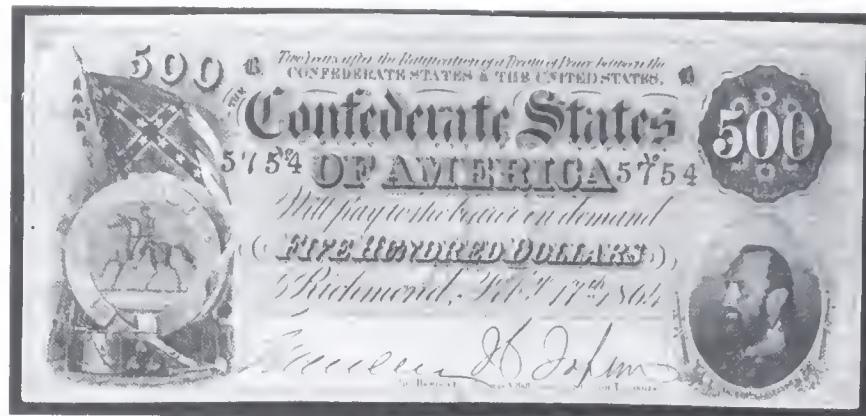 500 B Two Years after the Ratification of a Treaty of Peace between the B
CONFEDERATE STATES & THE UNITED STATES,
THE
Confederate States
500
5754 OF AMERICA 5754
Will pay to the bearer on demand
FIVE HUNDRED DOLLARS
Richmond, Feby 17th 1864
for Register for Treasurer